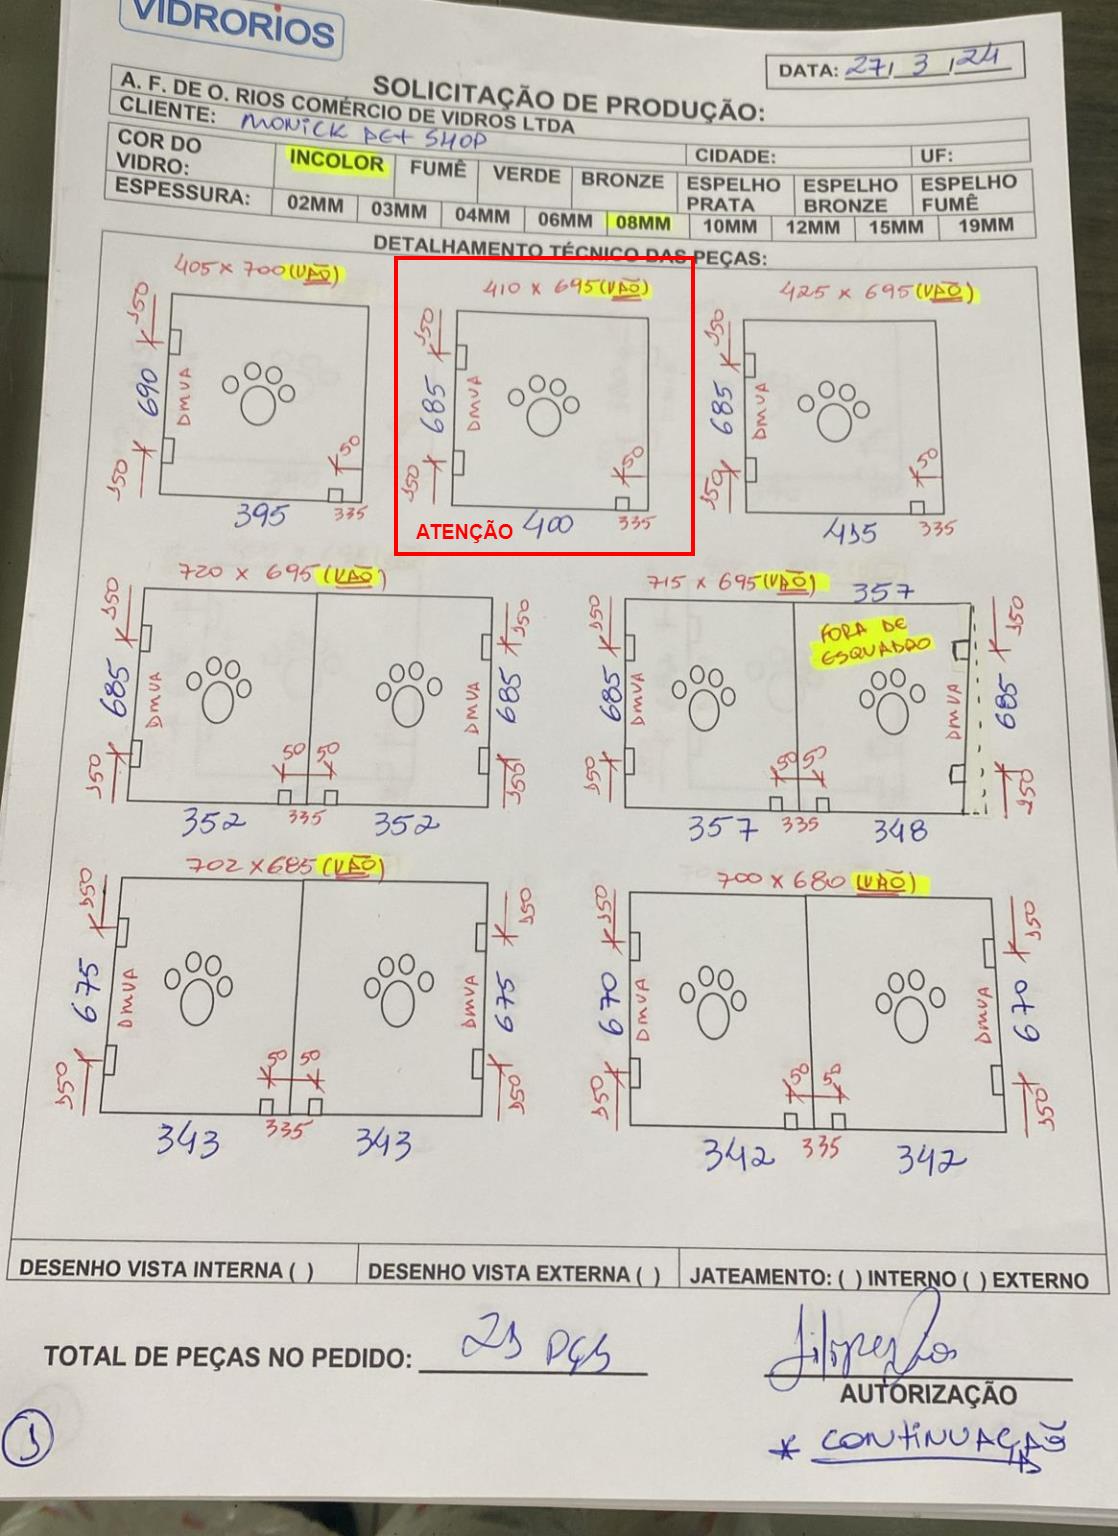 VIDRORIOS
SOLICITAÇÃO DE PRODUÇÃO:
DATA: 27/3/24
A. F. DE O. RIOS COMÉRCIO DE VIDROS LTDA
CLIENTE: MONICK PET SHOP
CIDADE: UF:
COR DO VIDRO: INCOLOR FUMÊ VERDE BRONZE ESPELHO PRATA ESPELHO BRONZE ESPELHO FUMÊ
ESPESSURA: 02MM 03MM 04MM 06MM 08MM 10MM 12MM 15MM 19MM
DETALHAMENTO TÉCNICO DAS PEÇAS:
405 x 700 (VÃO)
150
690
DMVA
150
50
395
335
410 x 695 (VÃO)
150
685
DMVA
150
50
ATENÇÃO
400
335
425 x 695 (VÃO)
150
685
DMVA
150
50
415
335
720 x 695 (VÃO)
150
150
685
DMVA
DMVA
685
150
50
50
150
352
335
352
715 x 695 (VÃO)
357
150
FORA DE
ESQUADRO
150
685
DMVA
DMVA
685
150
50
50
150
357
335
348
702 x 685 (VÃO)
150
150
675
DMVA
DMVA
675
150
50
50
150
343
335
343
700 x 680 (VÃO)
150
150
670
DMVA
DMVA
670
150
50
50
150
342
335
342
DESENHO VISTA INTERNA ( ) DESENHO VISTA EXTERNA ( ) JATEAMENTO: ( ) INTERNO ( ) EXTERNO
TOTAL DE PEÇAS NO PEDIDO: 21 PÇS
AUTORIZAÇÃO
1
* CONTINUAÇÃO